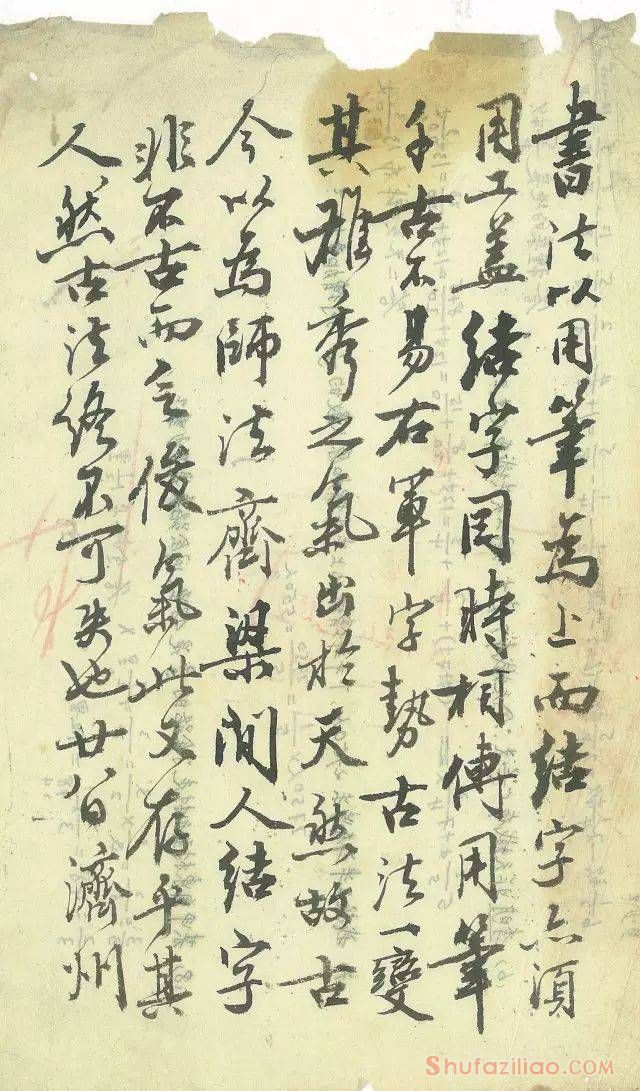 書法以用筆為上而結字亦須
用工蓋結字因時相傳用筆
千古不易右軍字勢古法一變
其雄秀之氣出於天然故古
今以為師法齊梁間人結字
非不古而乏俊氣此又存乎其
人然古法終不可失也廿八日濟州
Shufaziliao.COM